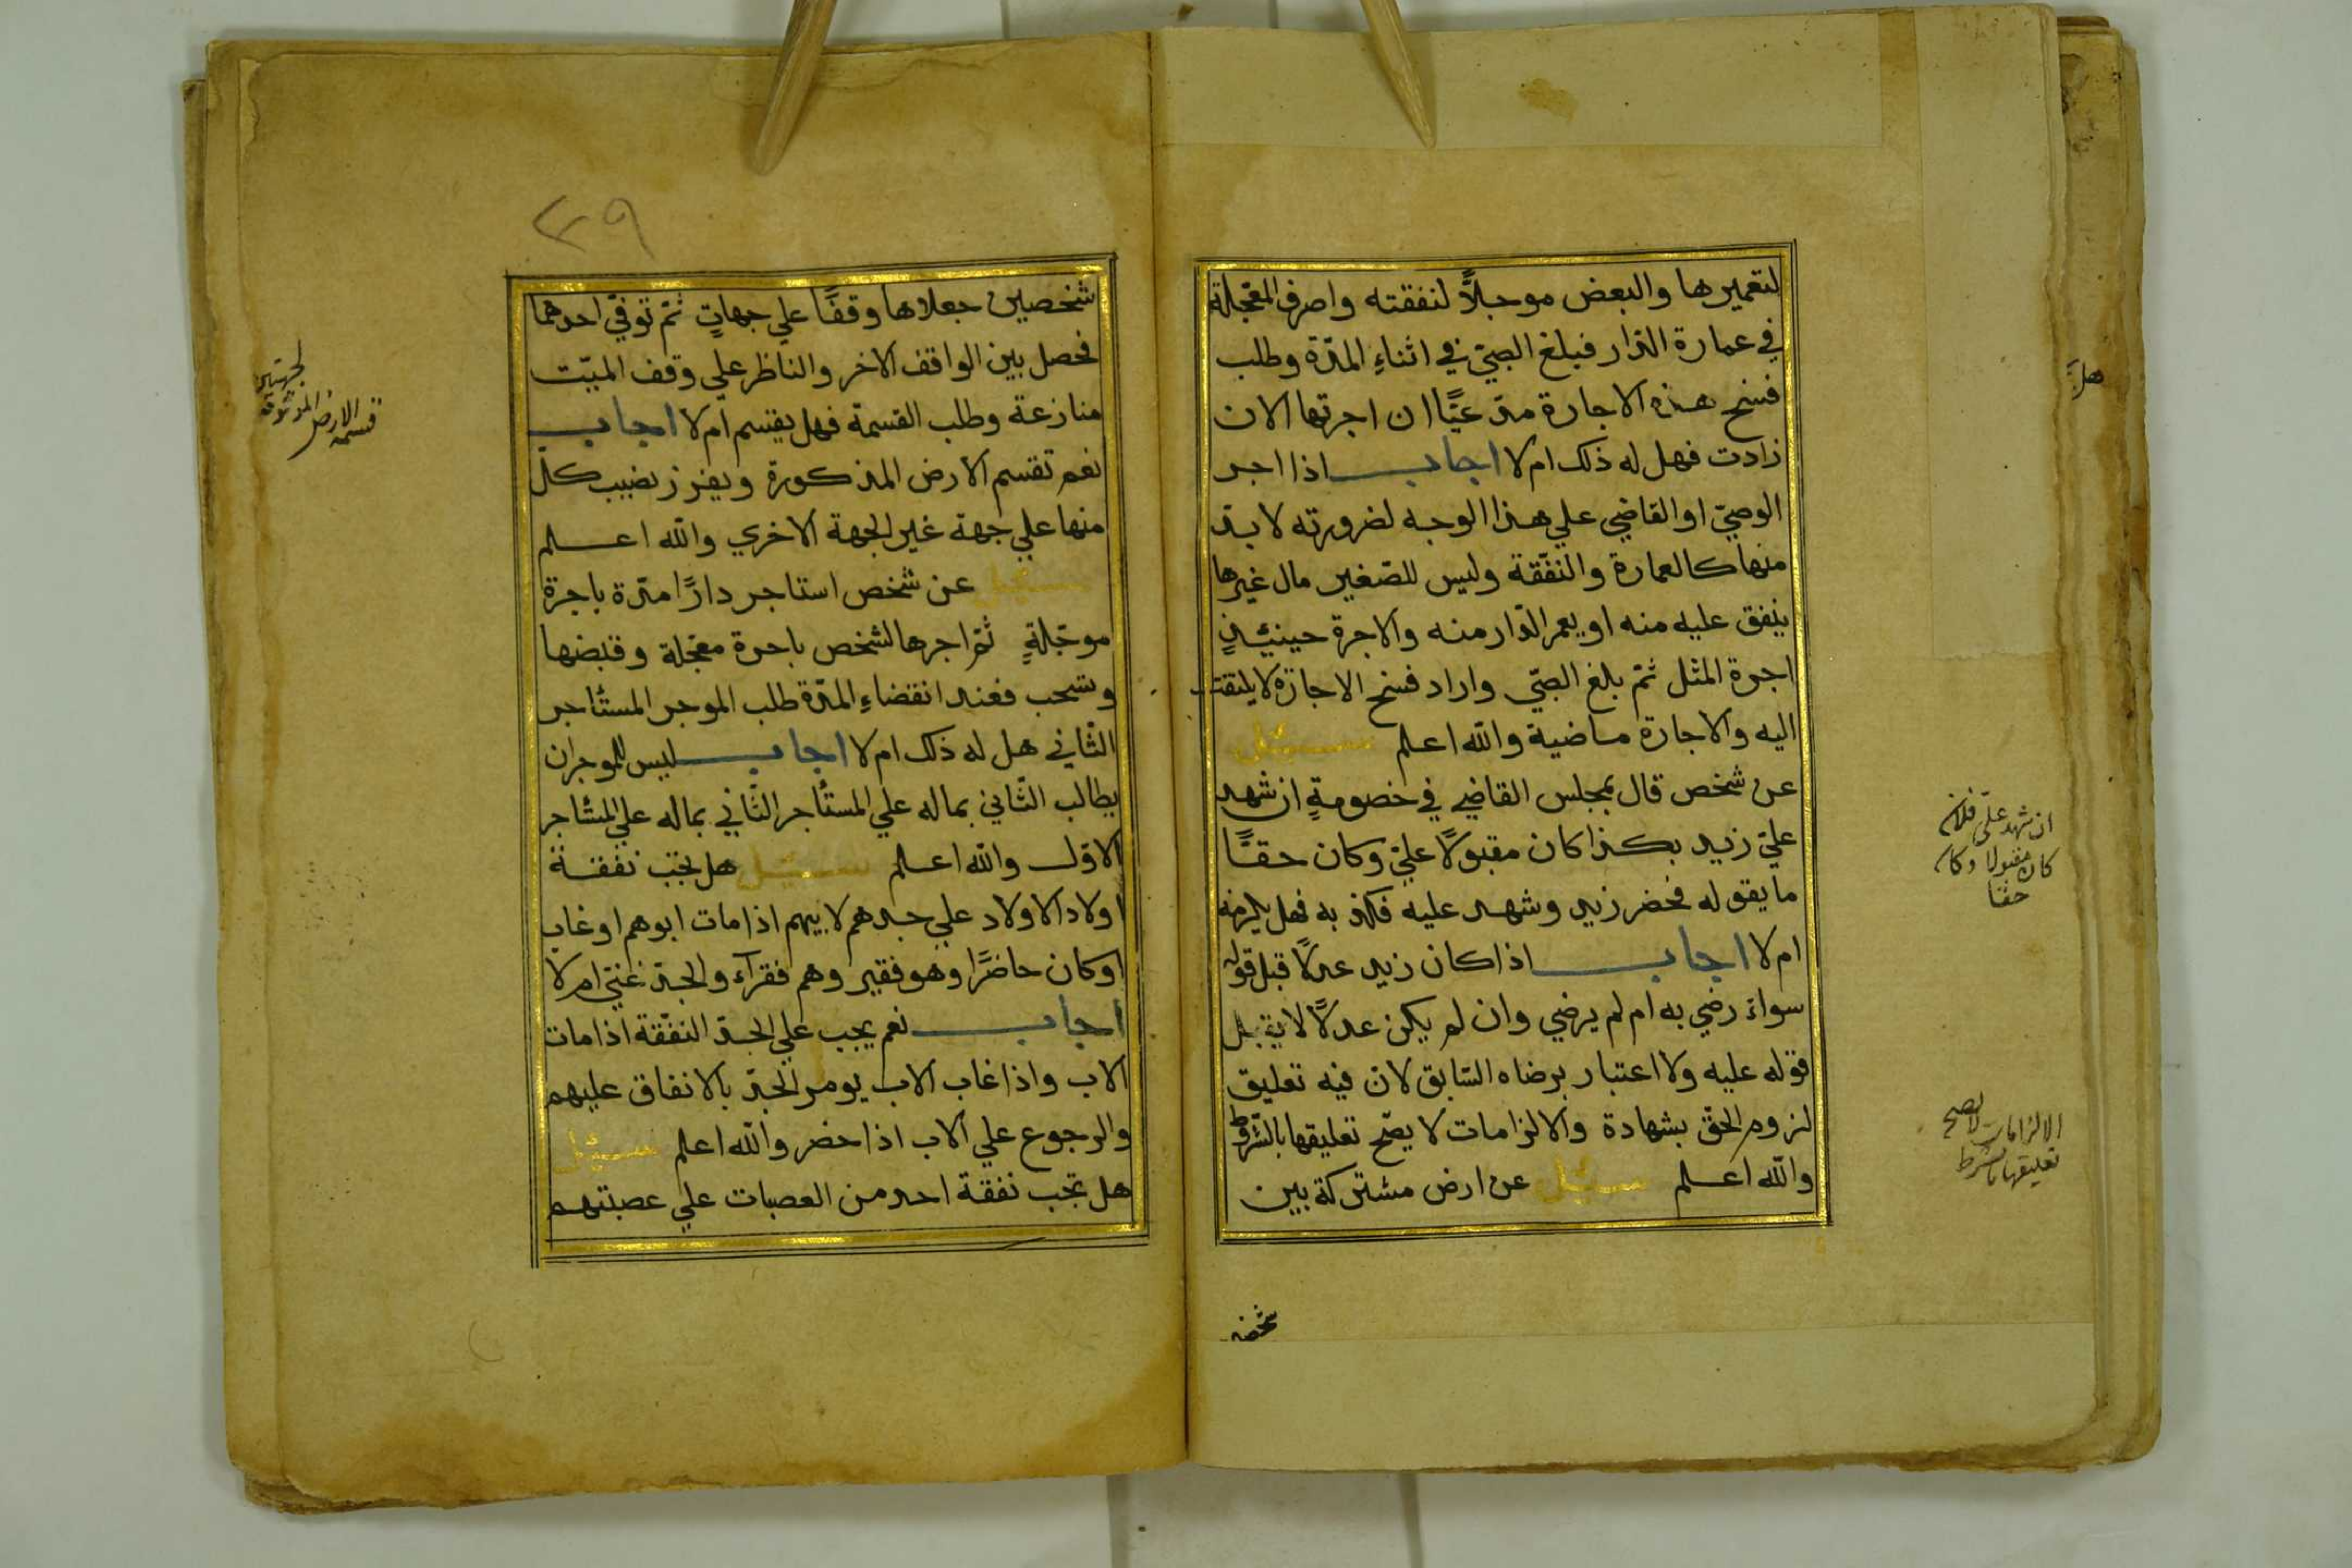 لتعميرها والبعض موجلاً لنفقته واصرف المعجّلة
في عمارة الدّار فبلغ الصبيّ في اثناءِ المدّة وطلب
فسخ هذه الاجارة مدّعيًا ان اجرتها الان
زادت فهل له ذلك ام لا اجاب اذا اجر
الوصيّ او القاضي علي هذا الوجه لضرورته لا بدّ
منها كالعمارة والنفّقة وليس للصّغير مال غيرها
ينفق عليه منه او يعمر الدّار منه والاجرة حينيئذٍ
اجرة المثل ثمّ بلغ الصبّي واراد فسخ الاجازة لا يلتفت
اليه والاجارة ماضية والله اعلم سئيل
عن شخص قال بمجلس القاضي في خصومةٍ ان شهد
عليّ زيد بكذا كان مقبولاً عليّ وكان حقًّا
ما يقوله فحضر زيد وشهد عليه فكذبه فهل يلزمه
ام لا اجاب اذا كان زيد عدلاً قبل قوله
سواء رضي به ام لم يرضي وان لم يكن عدلاً لا يقبل
قوله عليه ولا اعتبار برضاه السّابق لانّ فيه تعليق
لزوم الحقّ بشهادة والالزامات لا يصّح تعليقها بالشّروط
والله اعلم سئيل عن ارض مشتركة بين
شخصين
هل
ان شهد عليّ فلان
كان مقبولا وكان
حقا
الالزامات لا يصح
تعليقها بالشرط
٣٩
شخصين جعلاها وقفًا علي جهاتٍ ثمّ توفّي احدهما
فحصل بين الواقف الاخر والناظر علي وقف الميّت
منازعة وطلب القسمة فهل يقسم ام لا اجاب
نعم تقسم الارض المذكورة ويفرز نصيب كلّ
منها علي جهة غير الجهة الاخري والله اعلم
سئيل عن شخص استاجر دارًا مدّة باجرة
موجّلةٍ ثمّ اجرها لشخص باجرة معجّلة وقبضها
وسحب فعند انقضاءِ المدّة طلب الموجر المستاجر
الثّاني هل له ذلك ام لا اجاب ليس للموجر ان
يطالب الثّاني بماله علي المستأجر الثّاني بماله علي المستاجر
الاوّل والله اعلم سئيل هل تجب نفقة
اولاد الاولاد علي جدهم لابيهم اذا مات ابوهم او غاب
او كان حاضرًا وهو فقير وهم فقرآء والجدّ غنيّ ام لا
اجاب نعم يجب علي الجدّ النفّقة اذا مات
الاب واذا غاب الاب يومر الجدّ بالانفاق عليهم
والرجوع علي الاب اذا حضر والله اعلم سئيل
هل تجب نفقة احد من العصبات علي عصبتهم
قسمة الارض الموقوفة
لجهتين